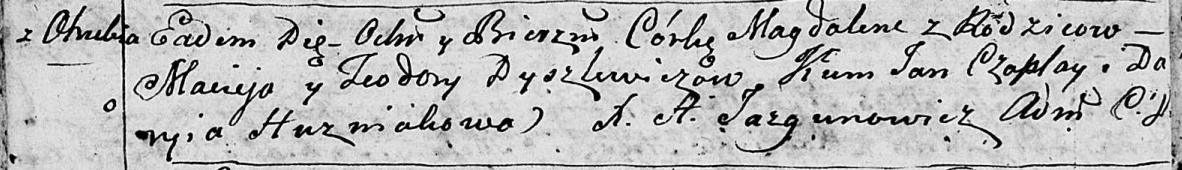 z Otrubia Eadem Die - Ochrz y Bierzm Córkę Magdalene z Rodzicow —
Macieja y Teodory Dyszlewiczow Kum Jan Czaplay. Da
ryia Huzniakowa) X. A. Jazgunowicz Adm